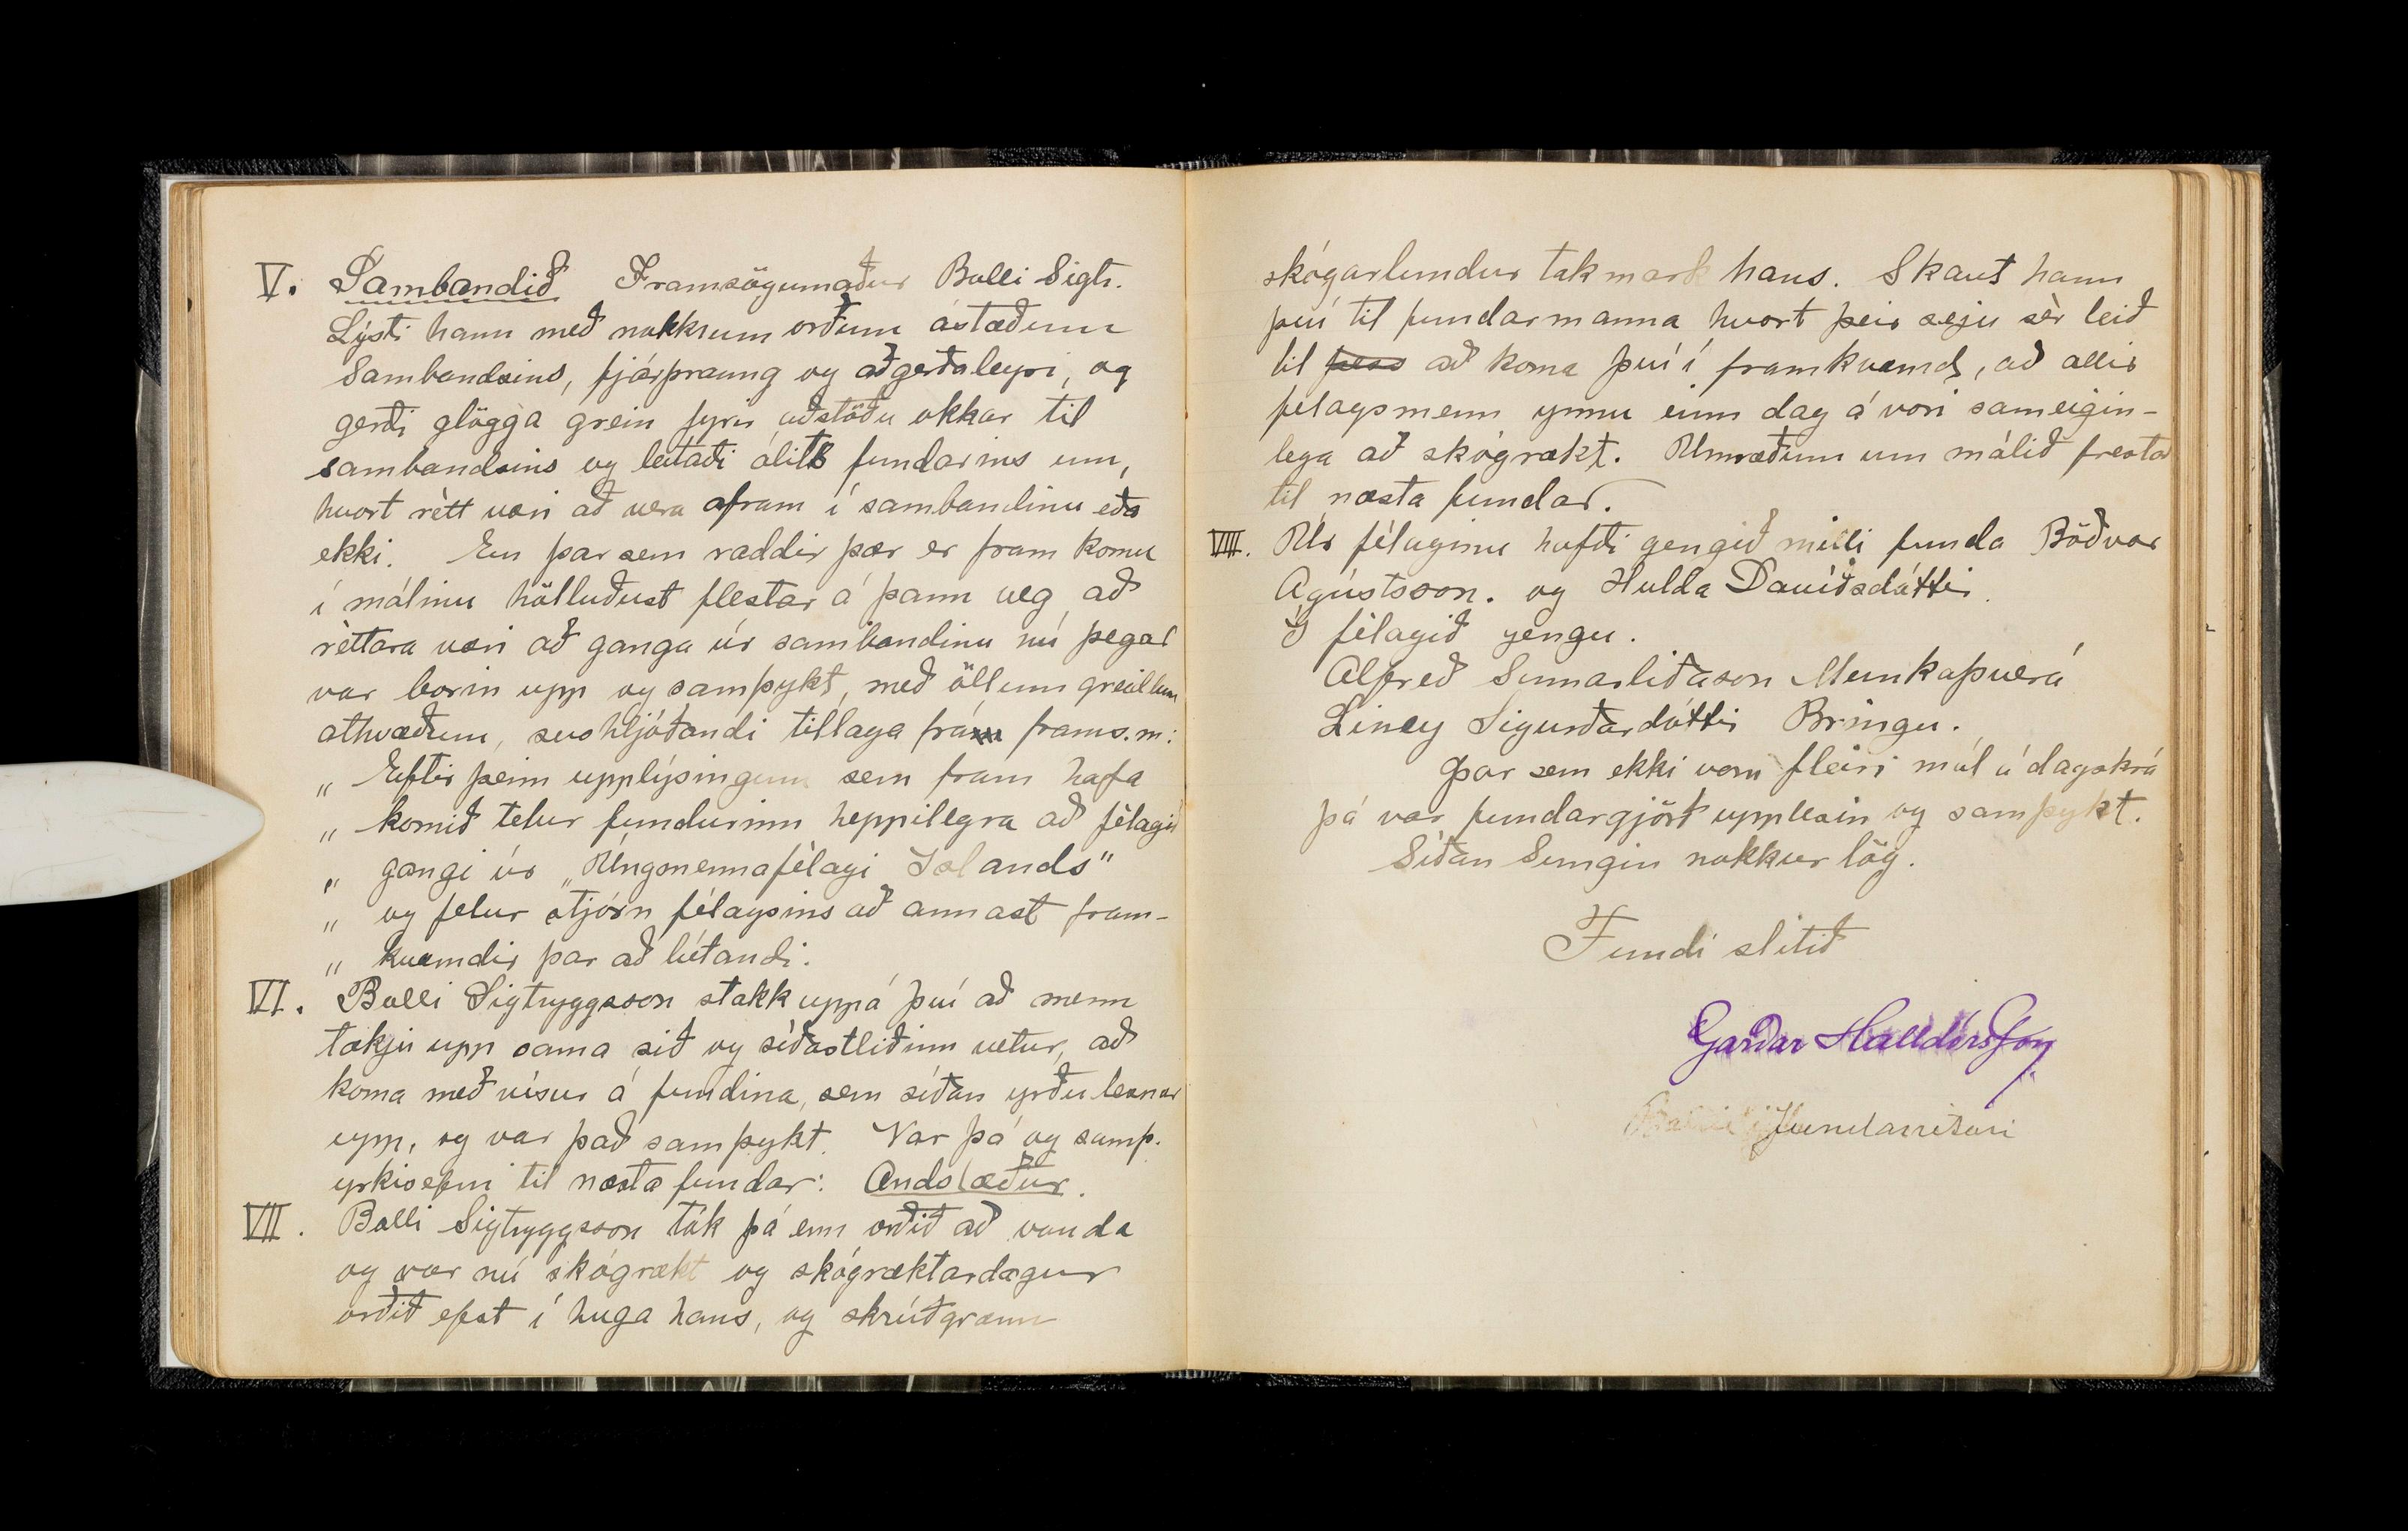 V. Sambandið Framsögumaður Balli Sigtr.
Lýsti hann með nokkrum orðum ástæðum
Sambandsins, fjárþraung og aðgerðaleysi, og
gerði glögga grein fyrir aðstöðu okkar til
sambandsins og leitaði álits fundarins um,
hvort rétt væri að vera afram í sambandinu eða
ekki. En þar sem raddir þær er fram komu
í málinu hölluðust flestar á þann veg að
réttara væri að ganga úr sambandinu nú þegar
var borin upp og samþykt, með öllum greiddum
athvæðum, svohljóðandi tillaga frá frams.m:
„ Eftir þeim upplýsingum sem fram hafa
„ komið telur fundurinn heppilegra að félagið
„ gangi úr „Ungmennafélagi Islands"
„ og felur stjórn félagsins að annast fram-
„ kvæmdir þar að lútandi.
VI. Balli Sigtryggsson stakk uppá því að menn
tækju upp sama sið og síðastliðinn vetur, að
koma með vísur á fundina, sem síðan yrðu lesnar
upp, og var það samþykt. Var þá og samþ.
yrkisefni til næsta fundar: Andstæður.
VII. Balli Sigtryggsson tók þá enn orðið að vanda
og var nú skógrækt og skógræktardagur
orðið efst í huga hans, og skrúðgrænn
skógarlundur takmark hans. Skaut hann
því til fundarmanna hvort þeir sæju sér leið
til þess að koma því í framkvæmd, að allir
félagsmenn ynnu einn dag á vori sameigin-
lega að skógrækt. Umræðum um málið frestað
til næsta fundar.
VIII. Úr félaginu hafði gengið milli funda Böðvar
Agústsson. og Hulda Davíðsdóttir.
Í félagið gengu.
Alfreð Sumarliðason Munkaþverá
Liney Sigurðardóttir Bringu.
Þar sem ekki voru fleiri mál á dagskrá
þá var fundargjört upplesin og samþykt.
Síðan Sungin nokkur lög.
Fundi slitið
Garðar Halldórsson
fundarritari